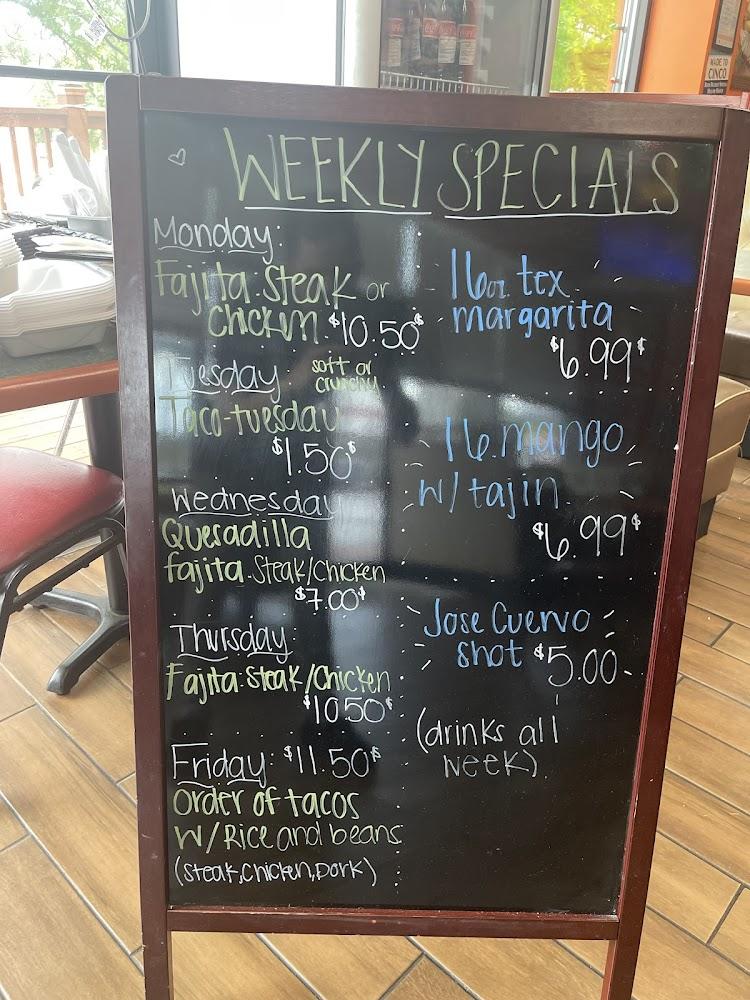 WEEKLY SPECIALS
Monday:
Fajita Steak or
Chicken $10.50$
Tuesday: soft or
crunchy
Taco-tuesday
$1.50$
Wednesday
Quesadilla
fajita Steak/Chicken
$7.00$
Thursday:
Fajita Steak/Chicken
$1050$
Friday: $11.50$
Order of tacos
W/Rice and beans
(Steak, Chicken, Pork)
16oz tex
margarita
$6.99$
16. mango
w/tajin
$6.99$
Jose Cuervo
shot $5.00
(drinks all
week)
MADE TO
CINCO